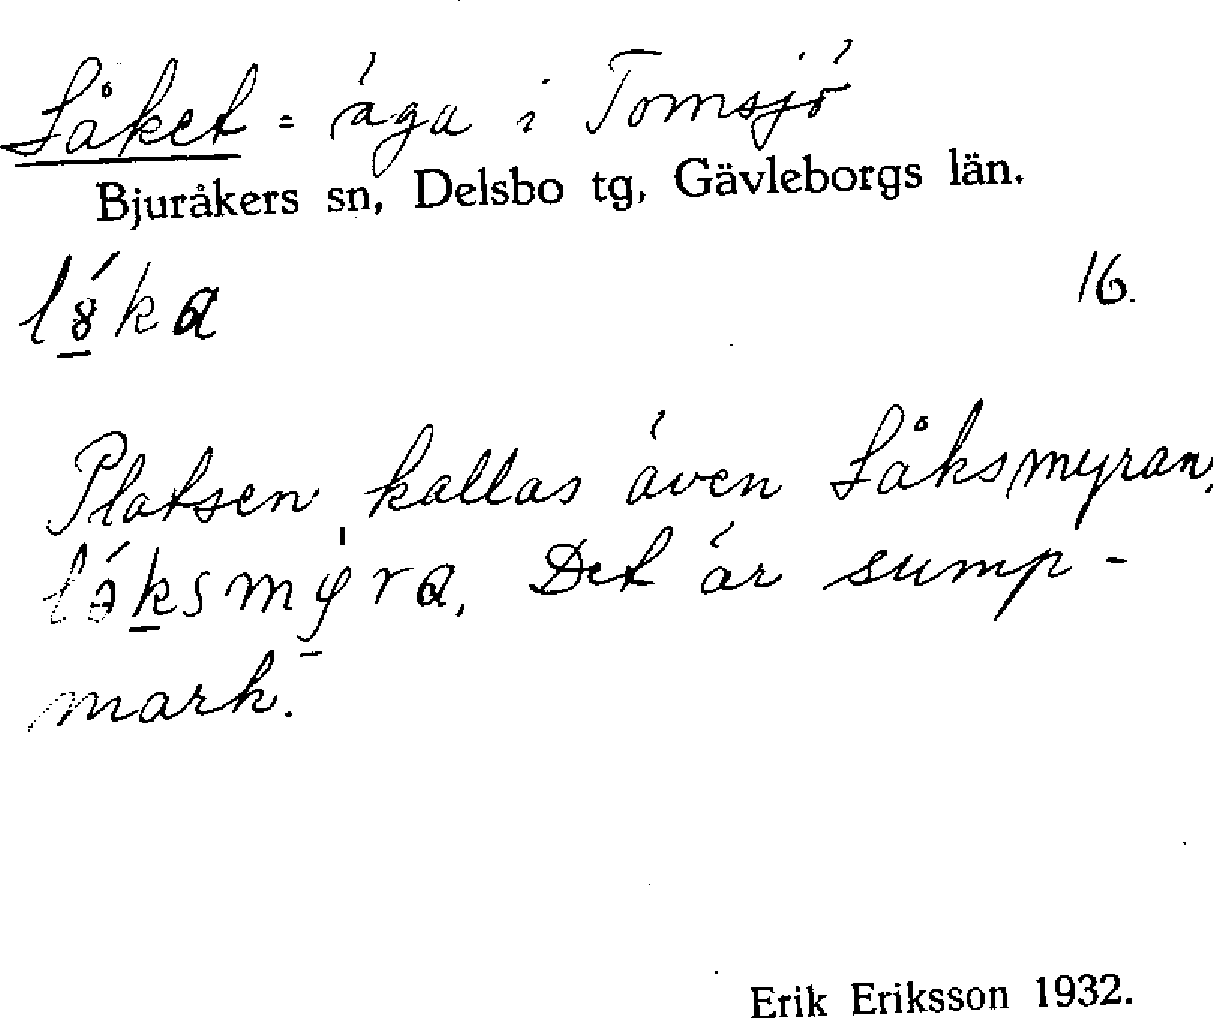 Låket = äga i Tomsjö
Bjuråkers sn, Delsbo tg, Gävleborgs län.
16.
Platsen kallas även Låksmyran,
Det är sump-
mark.
Erik Eriksson 1932.